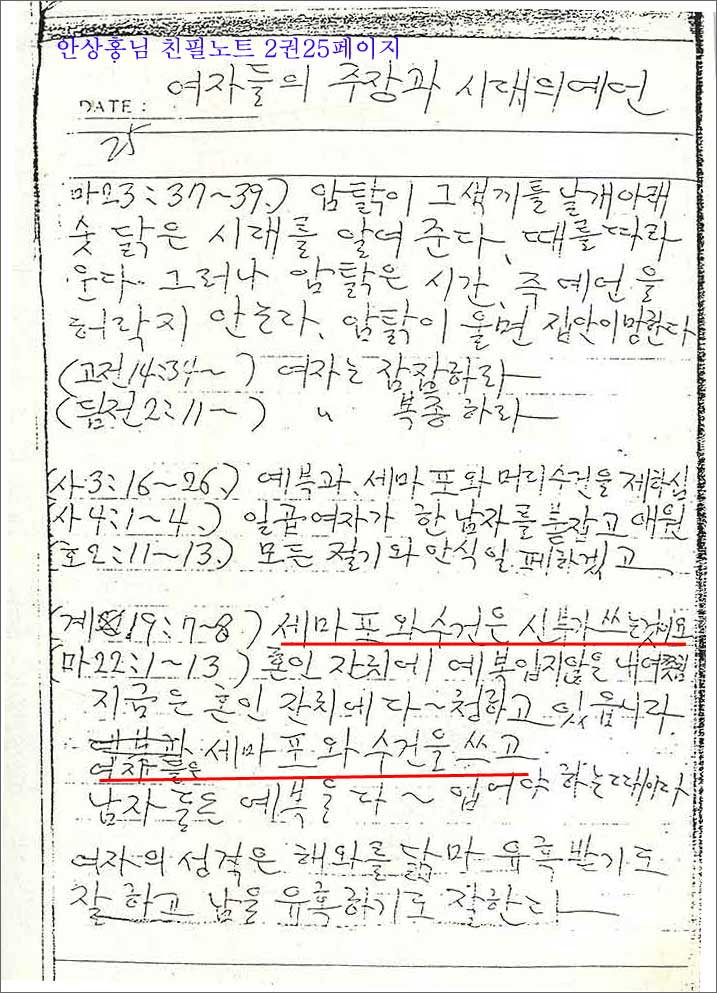 안상홍님 친필노트 2권25페이지
여자들의 주장과 시대의예언
DATE :
25
마23:37~39.) 암탉이 그색끼를 날개아래
숫닭은 시대를 알여준다, 때를따라
운다. 그러나 암탉은 시간, 즉 예언을
허락지 안는다, 암탉이 울면 집안이망한다
(고전14:34~ ) 여자는 잠잠하라
(딤전2:11~ ) 〃 복종하라
(사3:16~26.) 예복과, 세마포와 머리수건을 제하심
(사4:1~4.) 일곱여자가 한남자를 붙잡고 애원
(호2:11~13.) 모든 절기와 안식일 페하겠고
(계19:7~8) 세마포와수건은 신부가쓰는것이요
(마22:1~13) 혼인 잔칫에 예복입지않을 내여쫓김
지금은 혼인 잔치에다~청하고 있읍니다.
예복과 세마포와 수건을 쓰고
여자들은
남자들은 예복을 다~입어야 하는때이다
여자의 성격은 해와를 닮마 유혹받기도
잘하고 남을 유혹하기도 잘한다